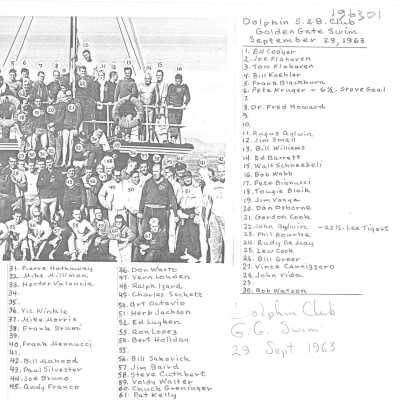 196301
Dolphin S. & B. Club
Golden Gate Swim
September 29, 1963
1. Ed Cooyer
2. Joe Flahaven
3. Tom Flahaven
4. Bill Koehler
5. Frank Blackburn
6. Pete Kruger - 6½. Steve Gaal
7.
8. Dr. Fred Howard
9.
10.
11. Rufus Aylwin
12. Jim Small
13. Bill Williams
14. Ed Barrett
15. Walt Schneebeli
16. Bob Webb
17. Pete Bianucci
18. Tougie Blaik
19. Jim Varga
20. Dan Osborne
21. Gordon Cook
22. John Aylwin - 22½. Leo Tigert
23. Phil Rourke
24. Rudy De May
25. Lew Cook
26. Bill Greer
27. Vince Cannizzaro
28. John Vida
29.
30. Bob Watson
31. Pierre Hathaway
32. Mike Milliman
33. Hector Valencia
34.
35.
36. Vic Winkle
37. Mike Morris
38. Frank Drum
39.
40. Frank Mennucci
41.
42. Bill Mahood
43. Paul Silvester
44. Joe Bruno
45. Andy Franco
46. Don Warto
47. Vern Lohden
48. Ralph Izard
49. Charles Sackett
50. Art Octavio
51. Herb Jackson
52. Ed Luyken
53. Ron Lopez
54. Bert Holiday
55.
56. Bill Sakovich
57. Jim Baird
58. Steve Cuthbert
59. Voldy Walter
60. Chuck Groninger
61. Pat Kelly
Dolphin Club
G.G. Swim
29 Sept 1963